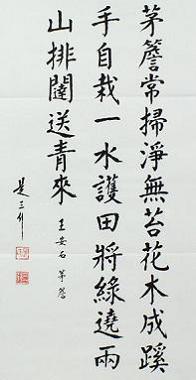 茅簷常掃淨無苔花木成蹊
手自栽一水護田將綠遶兩
山排闥送青來
王安石 茅簷